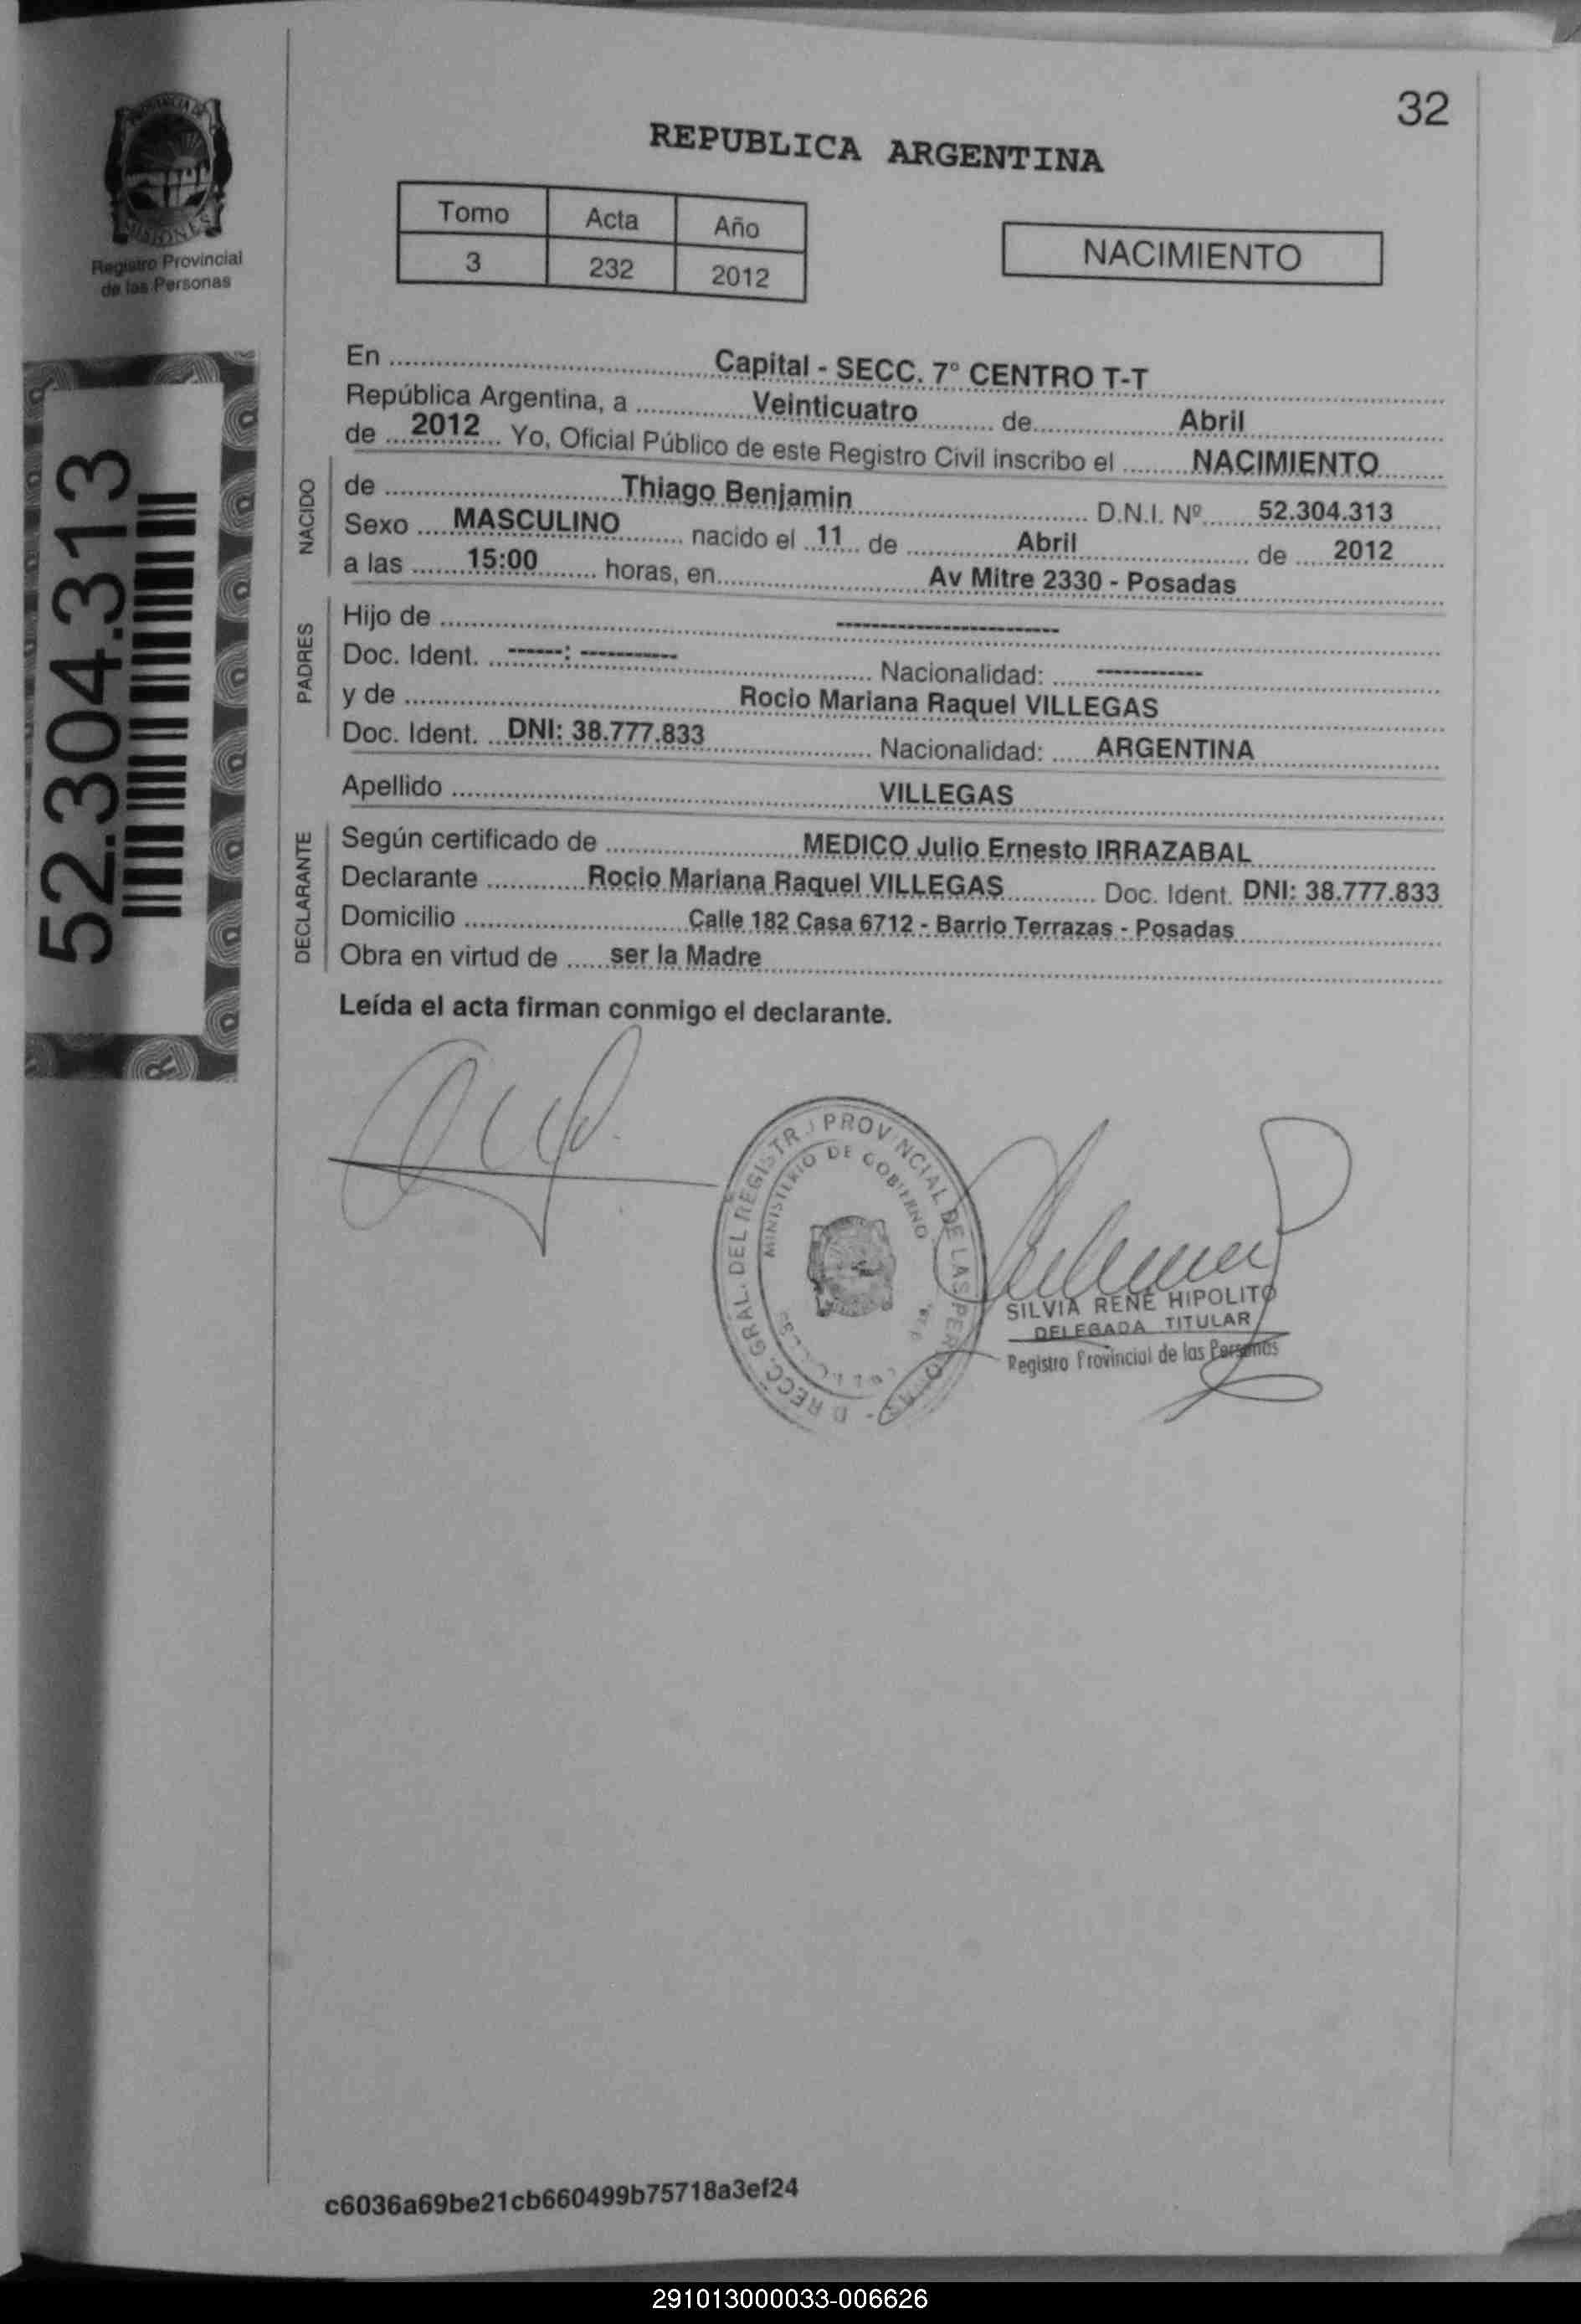 32
PROVINCIA DE
MISIONES
Registro Provincial
de las Personas
REPUBLICA ARGENTINA
Tomo Acta Año
3 232 2012
NACIMIENTO
52.304.313
En Capital - SECC. 7° CENTRO T-T
República Argentina, a Veinticuatro de Abril
de 2012 Yo, Oficial Público de este Registro Civil inscribo el NACIMIENTO
NACIDO
de Thiago Benjamin D.N.I. Nº 52.304.313
Sexo MASCULINO nacido el 11 de Abril de 2012
a las 15:00 horas, en Av Mitre 2330 - Posadas
PADRES
Hijo de -----------------------
Doc. Ident. ------: ----------- Nacionalidad: -----------
y de Rocio Mariana Raquel VILLEGAS
Doc. Ident. DNI: 38.777.833 Nacionalidad: ARGENTINA
Apellido VILLEGAS
DECLARANTE
Según certificado de MEDICO Julio Ernesto IRRAZABAL
Declarante Rocio Mariana Raquel VILLEGAS Doc. Ident. DNI: 38.777.833
Domicilio Calle 182 Casa 6712 - Barrio Terrazas - Posadas
Obra en virtud de ser la Madre
Leída el acta firman conmigo el declarante.
DIRECC. GRAL. DEL REGISTRO PROVINCIAL DE LAS PERSONAS
MINISTERIO DE GOBIERNO
SILVIA RENÉ HIPOLITO
DELEGADA TITULAR
Registro Provincial de las Personas
c6036a69be21cb660499b75718a3ef24
291013000033-006626